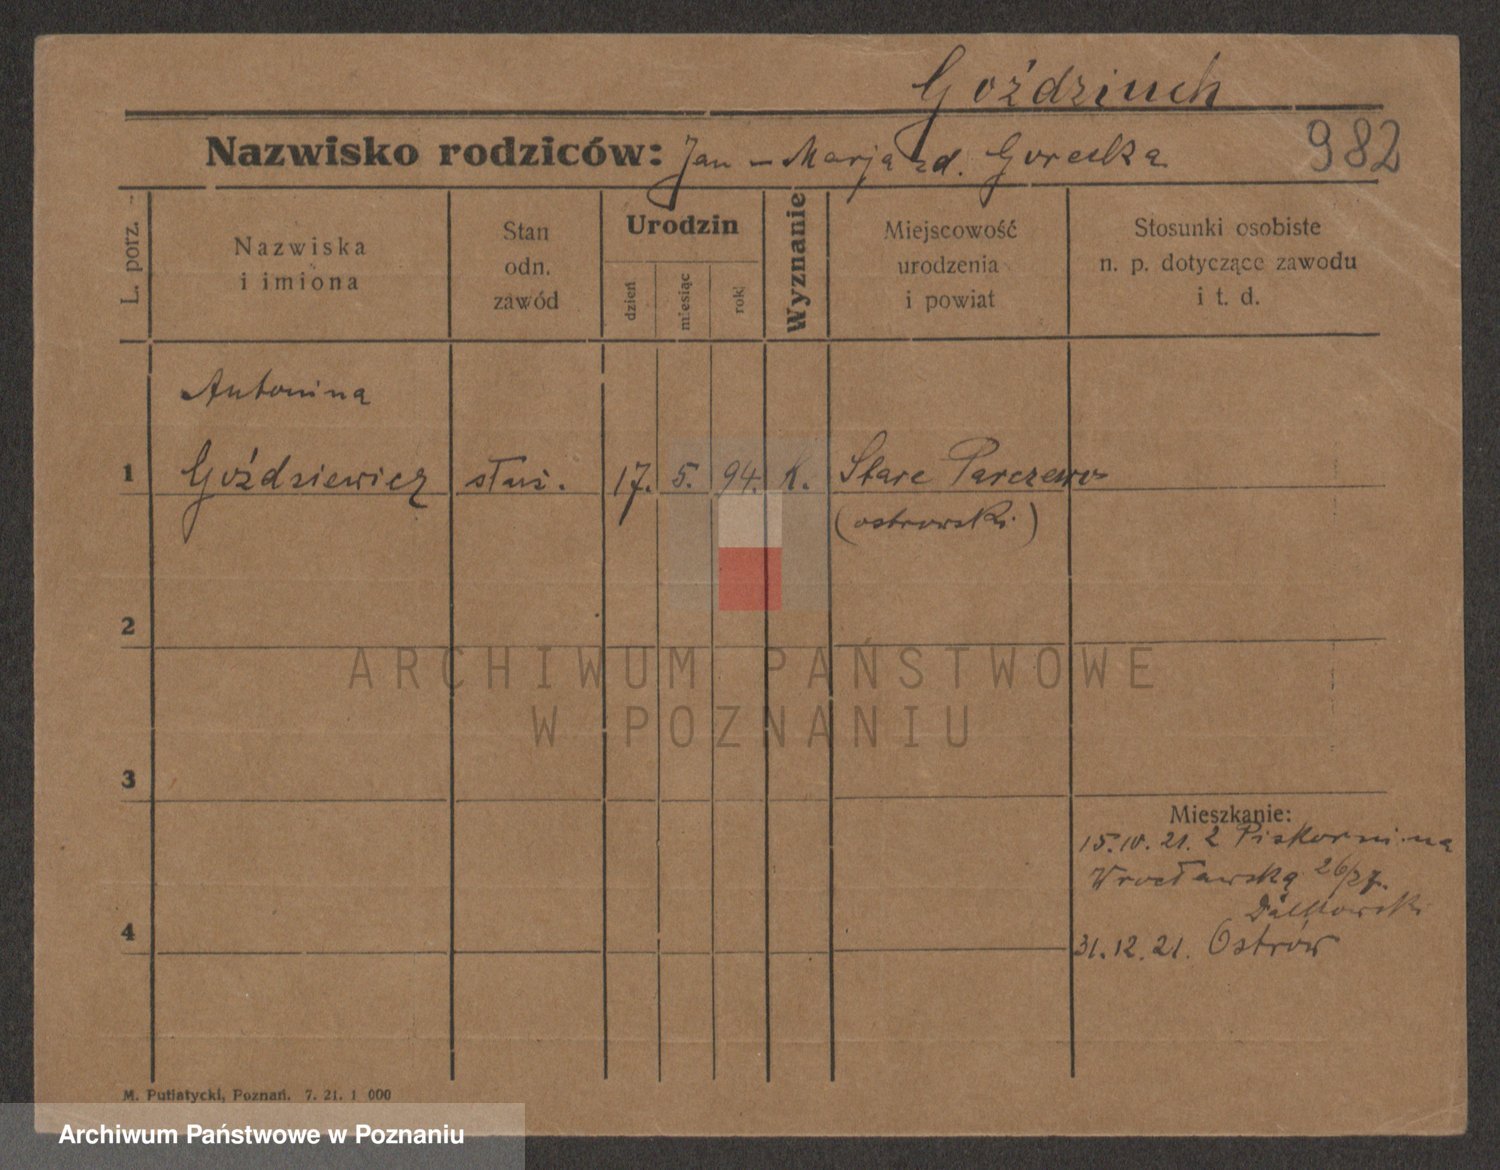 Goździuch
Nazwisko rodziców: Jan – Marja zd. Gorecka
982
L. porz.
Nazwiska
i imiona
Stan
odn.
zawód
Urodzin
dzień
miesiąc
rok
Wyznanie
Miejscowość
urodzenia
i powiat
Stosunki osobiste
n. p. dotyczące zawodu
i t. d.
Antonina
1 Goździewicz służ. 17. 5. 94. k. Stare Parczewo
(ostrowski)
2
ARCHIWUM PAŃSTWOWE
W POZNANIU
3
Mieszkanie:
15. 10. 21. z Piskorzi na
Wrocławską 26/27.
4
31. 12. 21. Ostrów
M. Putiatycki, Poznań. 7. 21. 1 000
Archiwum Państwowe w Poznaniu